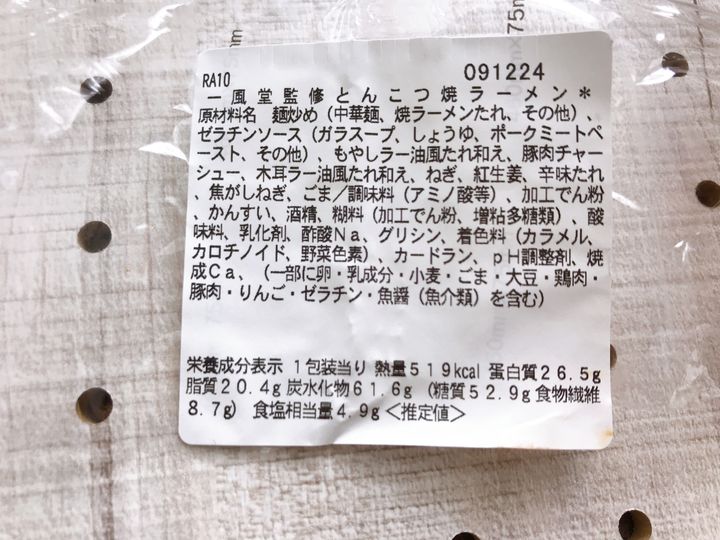 RA10 091224
一風堂監修とんこつ焼ラーメン＊
原材料名 麺炒め（中華麺、焼ラーメンたれ、その他）、
ゼラチンソース（ガラスープ、しょうゆ、ポークミートペ
ースト、その他）、もやしラー油風たれ和え、豚肉チャー
シュー、木耳ラー油風たれ和え、ねぎ、紅生姜、辛味たれ
、焦がしねぎ、ごま／調味料（アミノ酸等）、加工でん粉
、かんすい、酒精、糊料（加工でん粉、増粘多糖類）、酸
味料、乳化剤、酢酸Ｎａ、グリシン、着色料（カラメル、
カロチノイド、野菜色素）、カードラン、ｐＨ調整剤、焼
成Ｃａ、（一部に卵・乳成分・小麦・ごま・大豆・鶏肉・
豚肉・りんご・ゼラチン・魚醤（魚介類）を含む）
栄養成分表示 １包装当り 熱量５１９kcal 蛋白質２６.５g
脂質２０.４g 炭水化物６１.６g （糖質５２.９g 食物繊維
８.７g） 食塩相当量４.９g ＜推定値＞